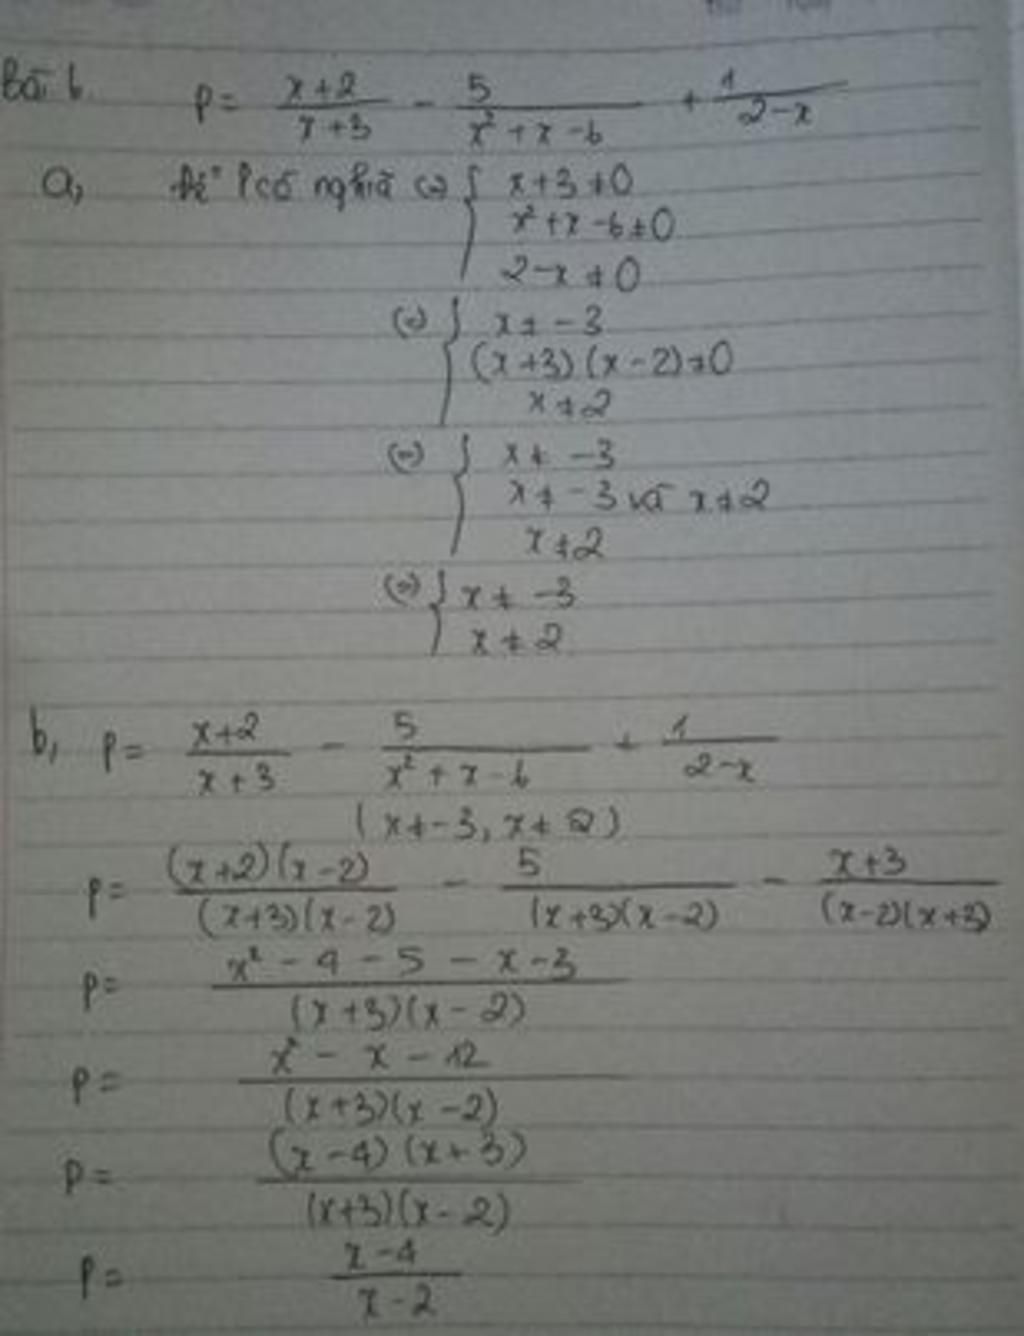 Bài 6 P = \frac{x+2}{x+3} - \frac{5}{x²+x-6} + \frac{1}{2-x}
a, Để P có nghĩa (=) { x+3 ≠ 0
x²+x-6 ≠ 0
2-x ≠ 0
(=) { x ≠ -3
(x+3)(x-2) ≠ 0
x ≠ 2
(=) { x ≠ -3
x ≠ -3 và x ≠ 2
x ≠ 2
(=) { x ≠ -3
x ≠ 2
b, P = \frac{x+2}{x+3} - \frac{5}{x²+x-6} + \frac{1}{2-x}
(x ≠ -3, x ≠ 2)
P = \frac{(x+2)(x-2)}{(x+3)(x-2)} - \frac{5}{(x+3)(x-2)} - \frac{x+3}{(x-2)(x+3)}
P = \frac{x²-4-5-x-3}{(x+3)(x-2)}
P = \frac{x²-x-12}{(x+3)(x-2)}
P = \frac{(x-4)(x+3)}{(x+3)(x-2)}
P = \frac{x-4}{x-2}